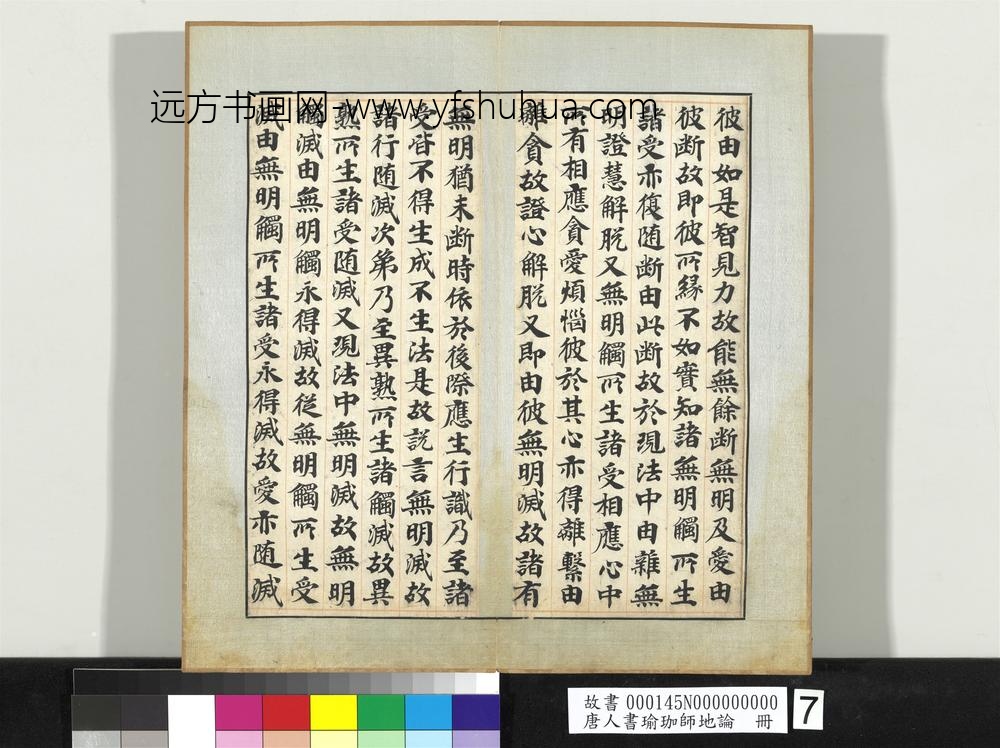 远方书画网-www.yfshuhua.com
彼由如是智見力故能無餘断無明及愛由
彼断故即彼所緣不如實知諸無明觸所生
諸受亦復随断由此断故於現法中由離無
明證慧解脫又無明觸所生諸受相應心中
所有相應貪愛煩惱彼於其心亦得離繫由
離貪故證心解脫又即由彼無明滅故諸有
無明猶未断時依於後際應生行識乃至諸
受皆不得生成不生法是故說言無明滅故
諸行随滅次第乃至異熟所生諸觸滅故異
熟所生諸受随滅又現法中無明滅故無明
觸滅由無明觸永得滅故從無明觸所生受
滅由無明觸所生諸受永得滅故愛亦随滅
故書 000145N000000000
唐人書瑜珈師地論 冊
7